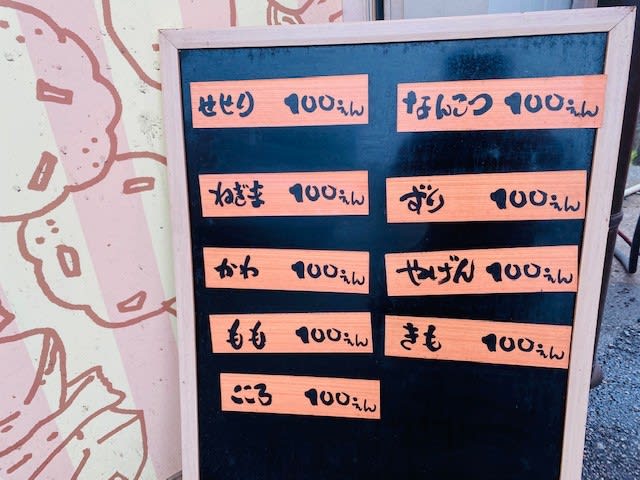 せせり 100えん
ねぎま 100えん
かわ 100えん
もも 100えん
こころ 100えん
なんこつ 100えん
ずり 100えん
やげん 100えん
きも 100えん